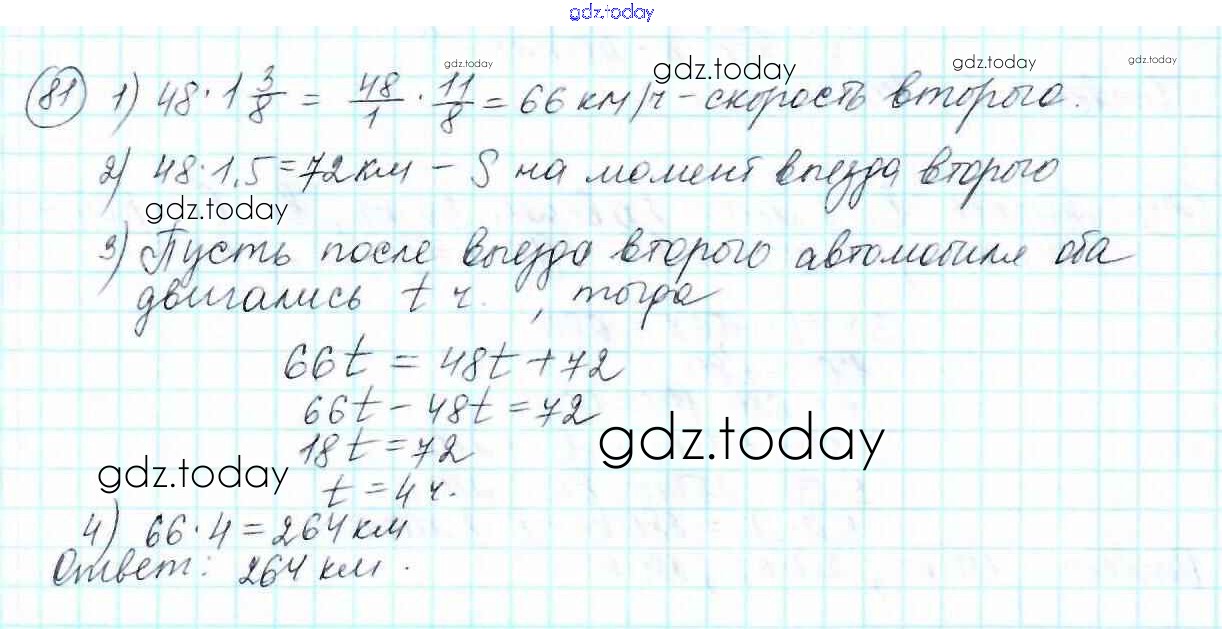 gdz.today
gdz.today
gdz.today
gdz.today
gdz.today
81 1) 48 · 1 3/8 = 48/1 · 11/8 = 66 км/ч - скорость второго.
2) 48 · 1,5 = 72 км - S на момент выезда второго
gdz.today
3) Пусть после выезда второго автомобиля оба
двигались t ч. , тогда
66t = 48t + 72
66t - 48t = 72
gdz.today
18t = 72
gdz.today
t = 4 ч.
4) 66 · 4 = 264 км
Ответ: 264 км.